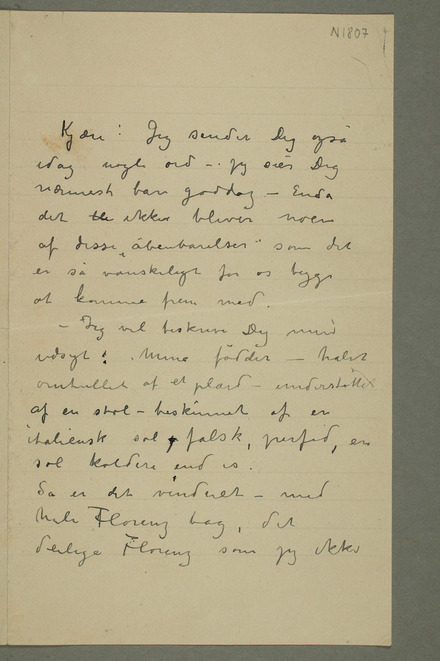 N1807
Kjære! Jeg sender Dig også
idag nogle ord – jeg sier Dig
nærmest bare goddag – Enda
det ikke bliver noen
af disse „åbenbarelser" som det
er så vanskeligt for os begge
at komme frem med.
– Jeg vil beskrive Dig min
udsigt: Mine fødder – halvt
omhyllet af et plaid – understøttet
af en stol – beskinnet af en
italiensk sol, falsk, perfid, en
sol koldere end is.
Så er det vinduet – med
hele Florenz bag, det
deilige Florenz som jeg ikke